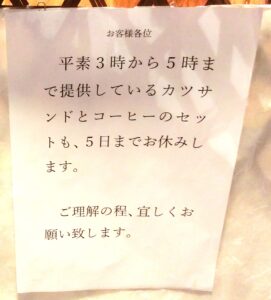 お客様各位
　平素３時から５時ま
で提供しているカツサ
ンドとコーヒーのセッ
トも、５日までお休みし
ます。
　ご理解の程、宜しくお
願い致します。